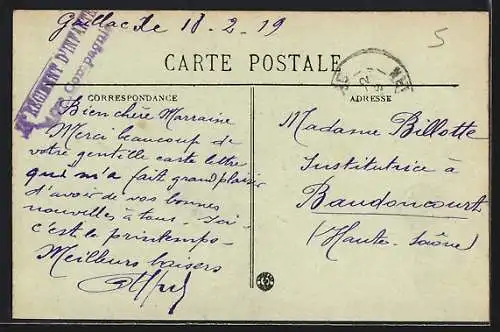 18-2-19
5
RÉGIMENT D'INFANTERIE
Compagnie
CARTE POSTALE
CORRESPONDANCE
ADRESSE
Bien chère Marraine
Merci beaucoup de
votre gentille carte lettre
qui m'a fait grand plaisir
d'avoir de vos bonnes
nouvelles à tous - Ici -
c'est le printemps -
Meilleurs baisers
Madame Billotte
Institutrice à
Baudoncourt
(Haute-Saône)